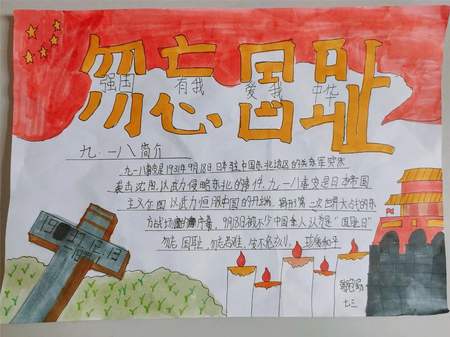 勿忘国耻
强国 有我 爱我 中华
九·一八简介
九一八事变是1931年9月18日日本驻中国东北地区的关东军突然
袭击沈阳,以武力侵略东北的事件,九一八事变是日本帝国
主义企图以武力征服中国的开端,揭开第二次世界大战的东
方战场的序幕,9月18日被不少中国人认为是“国耻日”
勿忘国耻,勿忘苦难,珍爱和平
七三